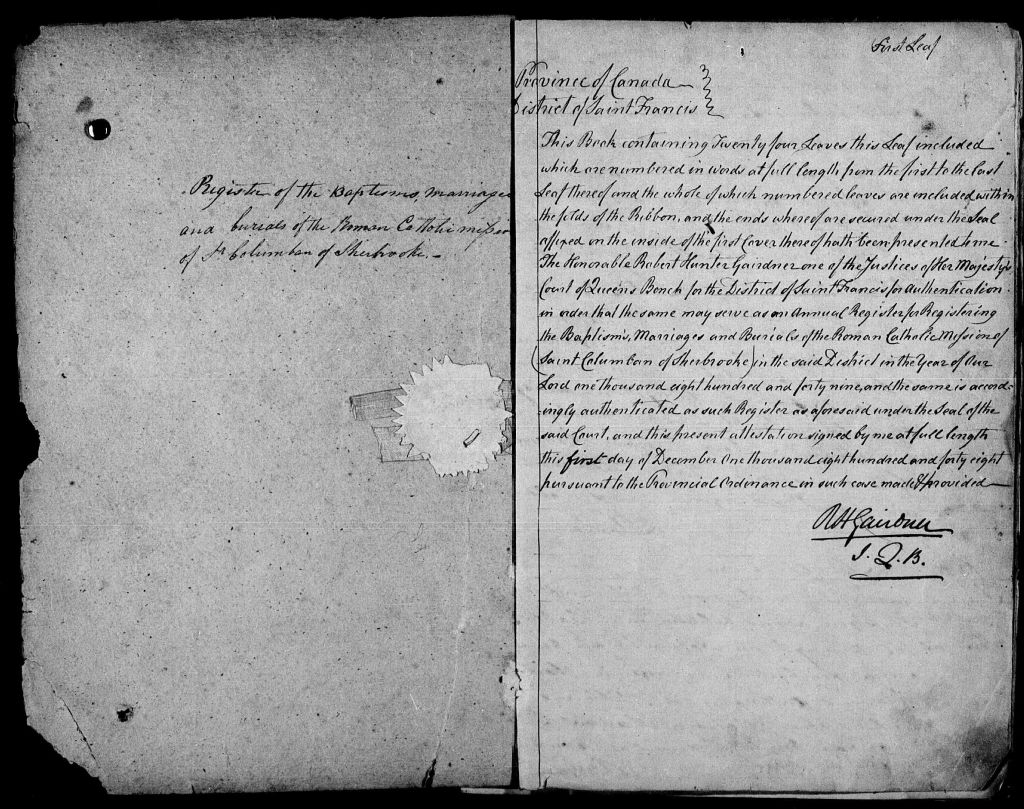 Register of the Baptisms, marriages
and burials of the Roman Catholic mission
of St Columban of Sherbrooke.-
First Leaf
Province of Canada
District of Saint Francis
This Book containing Twenty four Leaves this Leaf included
which are numbered in words at full length from the first to the last
Leaf thereof and the whole of which numbered leaves are included within
the folds of the Ribbon, and the ends whereof are secured under the Seal
affixed on the inside of the first Cover thereof hath been presented to me
The Honorable Robert Hunter Gairdner one of the Justices of Her Majesty's
Court of Queen's Bench for the District of Saint Francis for authentication
in order that the same may serve as an Annual Register for Registering
the Baptisms, Marriages and Burials of the Roman Catholic Mission of
(Saint Columban of Sherbrooke) in the said District in the Year of Our
Lord one thousand eight hundred and forty nine, and the same is accord-
ingly authenticated as such Register as aforesaid under the Seal of the
said Court, and this present attestation signed by me at full length
this first day of December One thousand eight hundred and forty eight
pursuant to the Provincial Ordinance in such case made & provided
RH Gairdner
J. Q. B.